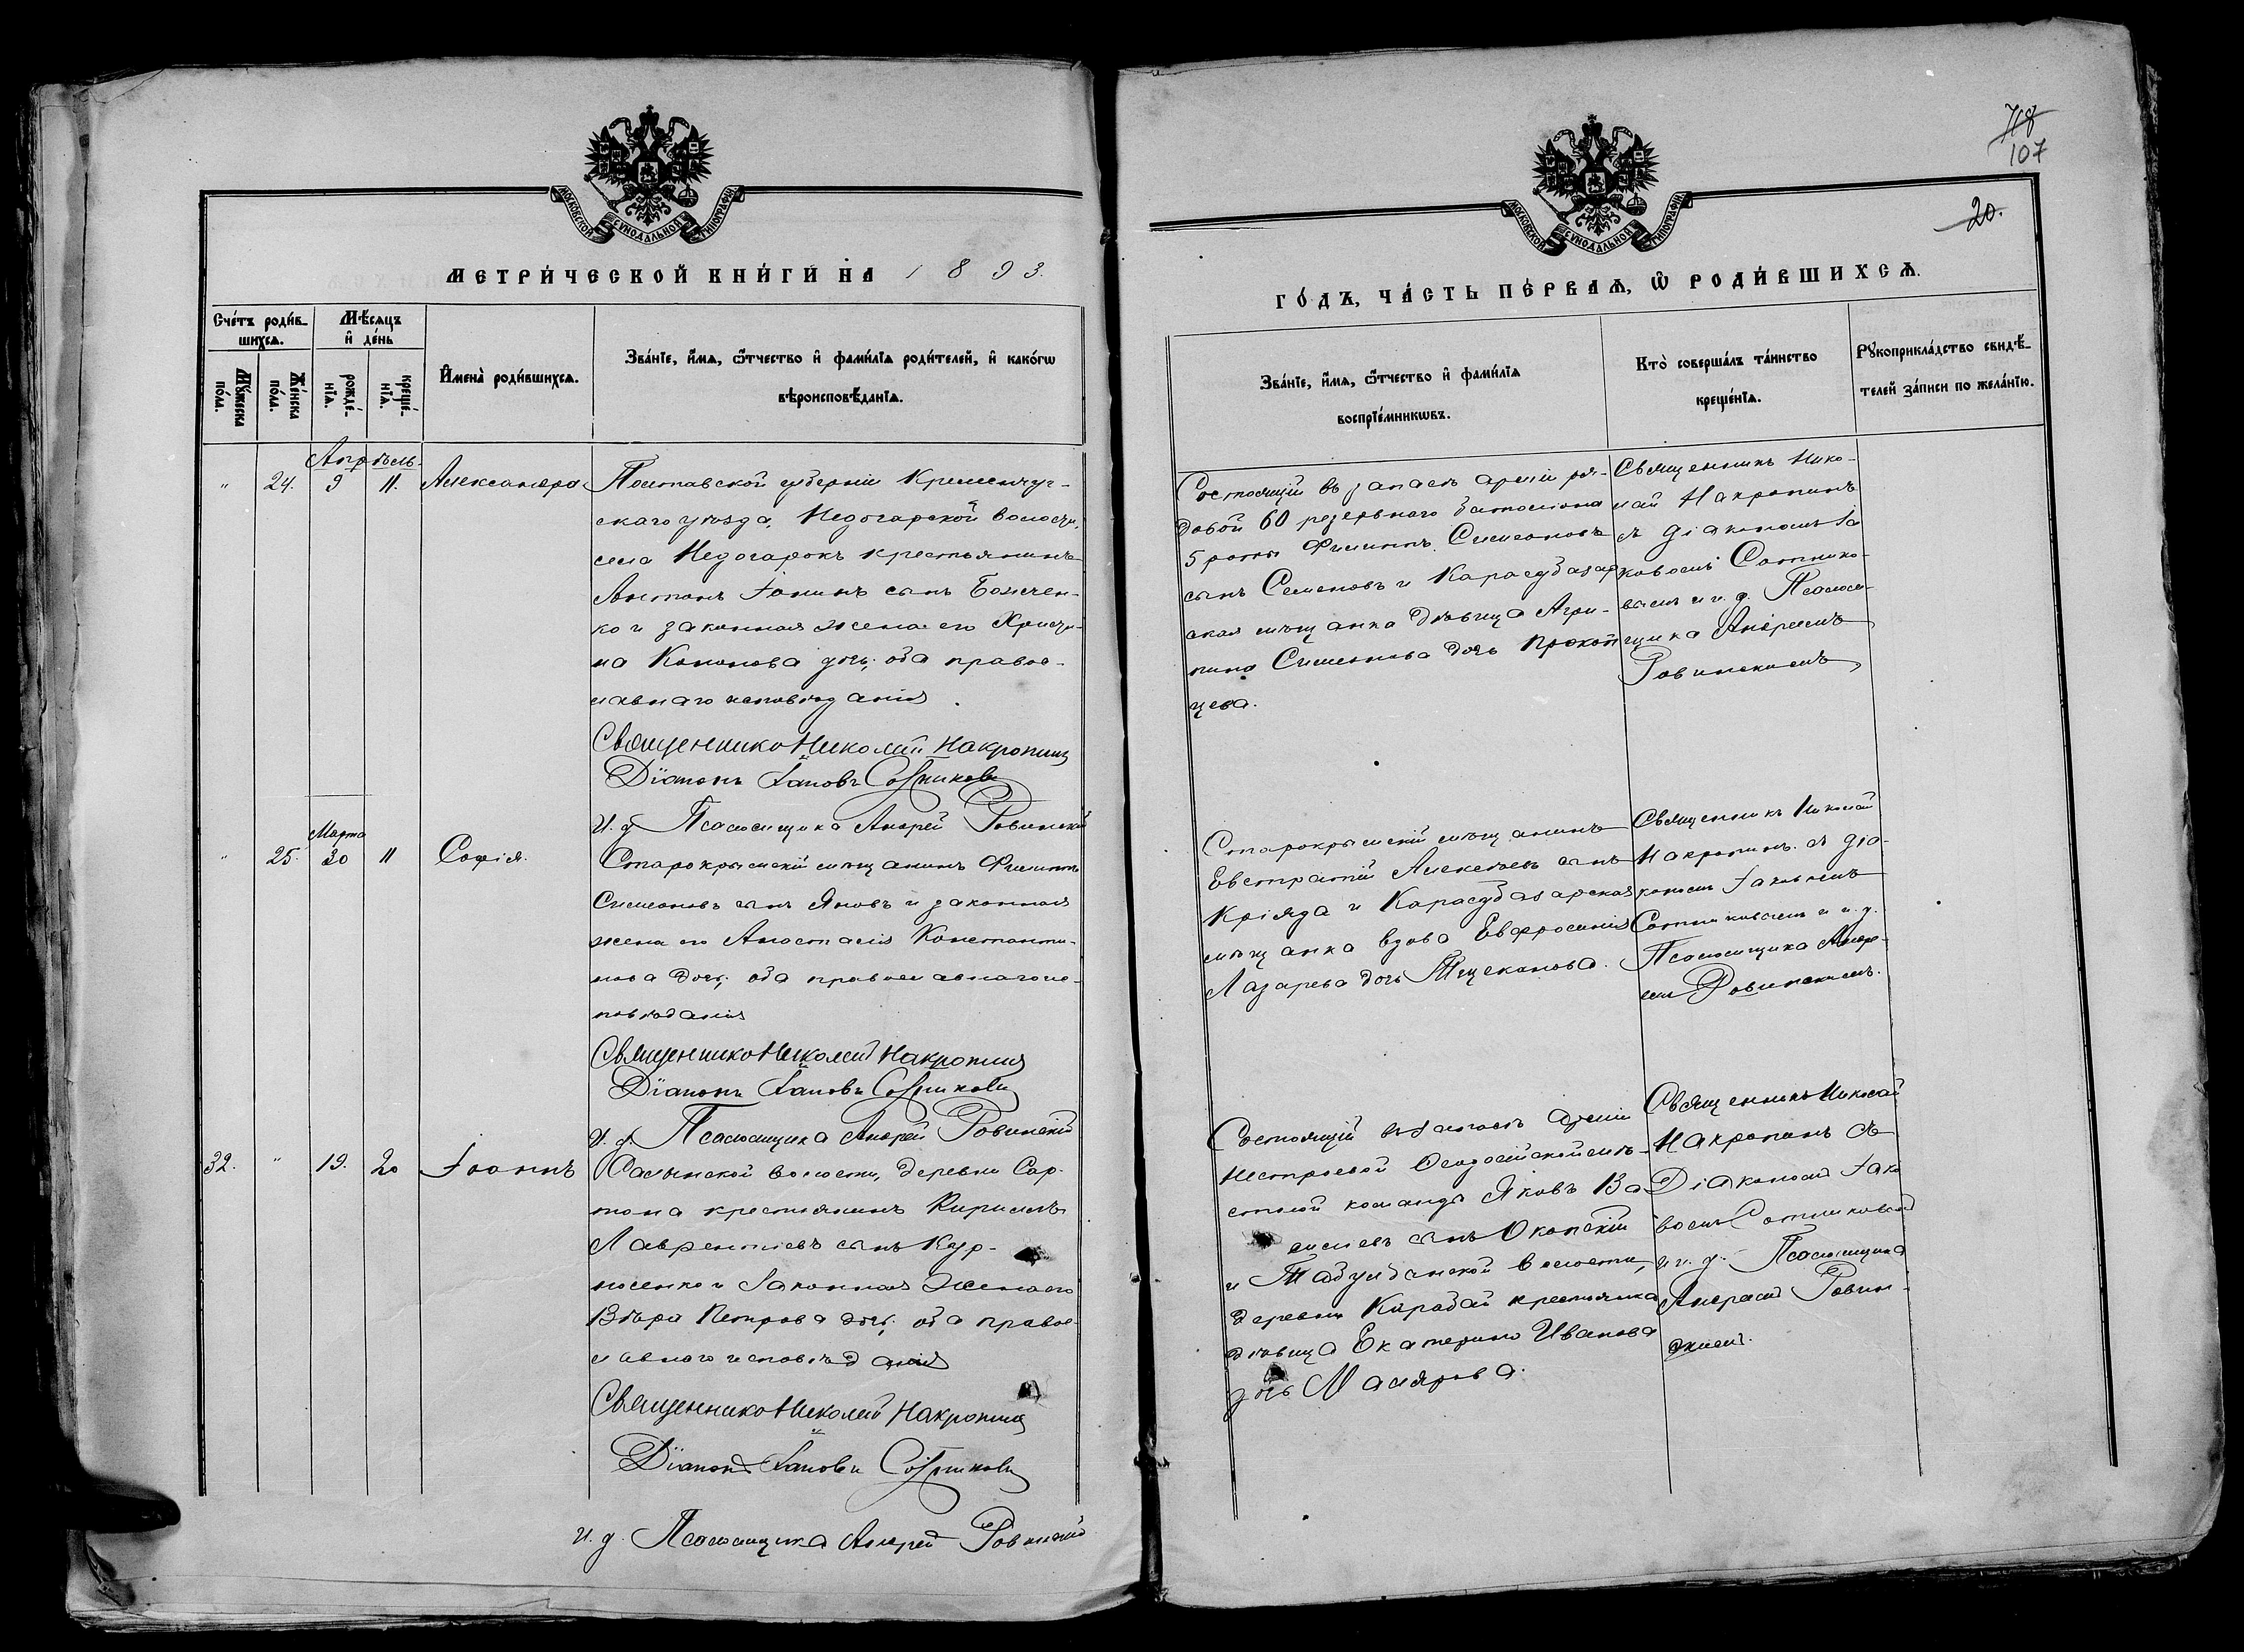 МОСКОВСКОЙ СѴНОДАЛЬНОЙ ТИПОГРАФІИ
МЕТРИ́ЧЕСКОЙ КНИ́ГИ НА 1893.
Сче́тъ роди́вшихсѧ.
Мꙋ́жеска по́ла.
Же́нска по́ла.
Мѣ́сѧцъ и҆ де́нь
рожде́нїѧ.
креще́нїѧ.
И҆мена̀ роди́вшихсѧ.
Зва́нїе, и҆́мѧ, ѻ҆́тчество и҆ фами́лїѧ роди́телей, и҆ како́гѡ
вѣроисповѣ́данїѧ.
Апрѣль.
" 24. 9 11. Александра
Полтавской губерніи Кременчуг-
скаго уѣзда, Недогарской волости,
села Недогарокъ крестьянинъ
Антонъ Іонинъ сынъ Божчен-
ко и законная жена его Христи-
на Кононова дочь; оба правос-
лавнаго исповѣданія.
Священникъ Николай Накропинъ
Діаконъ Іаковъ Сотниковъ
И. д. Псаломщика Андрей Ровинскій
Марта
" 25. 30 11 Софія.
Старокрымскій мѣщанинъ Филиппъ
Симеоновъ сынъ Яновъ и законная
жена его Анастасія Константи-
нова дочь; оба православнаго ис-
повѣданія
Священникъ Николай Накропинъ
Діаконъ Іаковъ Сотниковъ
И. д. Псаломщика Андрей Ровинскій
32. " 19. 20 Іоаннъ
Салынской волости, деревни Сар-
тона крестьянинъ Кириллъ
Лаврентіевъ сынъ Кур-
носенко и Законная Жена его
Вѣра Петрова дочь; оба правос-
лавнаго исповѣданія
Священникъ Николай Накропинъ
Діаконъ Іаковъ Сотниковъ
И. д. Псаломщика Андрей Ровинскій
107
20.
МОСКОВСКОЙ СѴНОДАЛЬНОЙ ТИПОГРАФІИ
ГО́ДЪ, ЧА́СТЬ ПЕ́РВАѦ, Ѡ҆ РОДИ́ВШИХСѦ.
Зва́нїе, и҆́мѧ, ѻ҆́тчество и҆ фами́лїѧ
воспрїе́мникѡвъ.
Кто̀ соверша́лъ та́инство
креще́нїѧ.
Рꙋкоприкла́дство свидѣ́-
телей за́писи по жела́нїю.
Состоящій въ запасѣ арміи ря-
довой 60 резервнаго баталіона
5 роты Филиппъ Симеоновъ
сынъ Семеновъ и Карасубазар
ская мѣщанка дѣвица Агри-
пина Симеонова дочь Прокоп
цева.
Священникъ Нико-
лай Накропинъ
съ діакономъ Іа
ковомъ Сотнико-
вымъ и и. д. Псалом-
щика Андреемъ
Ровинскимъ
Старокрымскій мѣщанинъ
Евстратій Алексѣевъ сынъ
Кріяда и Карасубазарская
мѣщанка вдова Евфросинія
Лазарева дочь Тищеканова.
Священникъ Николай
Накропинъ съ діа-
кономъ Іаковомъ
Сотниковымъ и и. д.
Псаломщика Андре-
емъ Ровинскимъ.
Состоящій въ Запасѣ Арміи
Нестроевой Ѳеодосійской мѣ-
стной команды Яковъ Ва
сильевъ сынъ Оконскій
и Табулдинской волости,
деревни Карабай крестьянка
дѣвица Екатерина Иванова
дочь Малярова.
Священникъ Николай
Накропинъ съ
Діакономъ Іако
вомъ Сотниковымъ
и и. д. Псаломщика
Андреемъ Ровин-
скимъ.